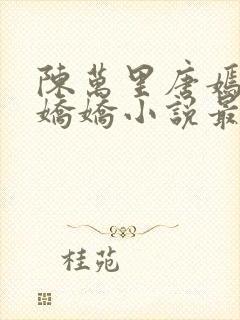 陳萬里唐嫣
嬌嬌小說最
桂苑